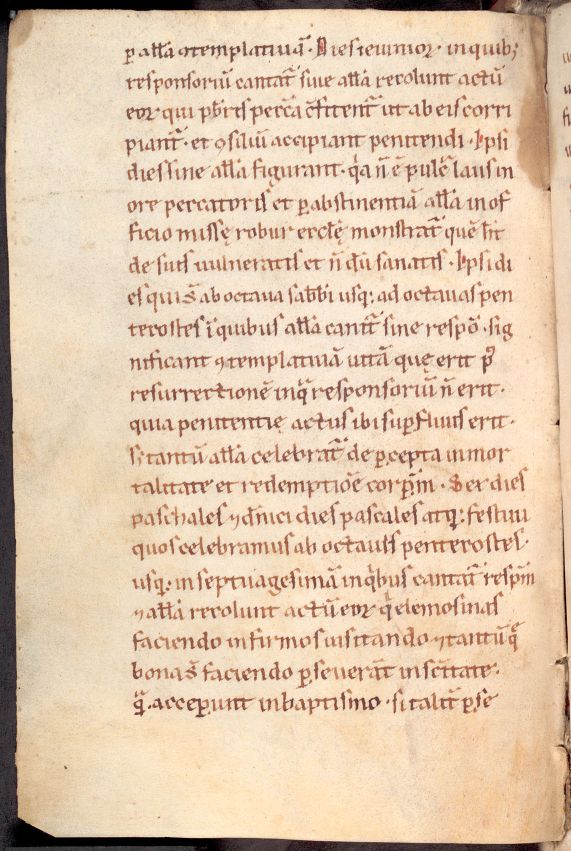 ꝑ alla ꝯtemplatiuā. Dies ieiunior. in quibꝫ
responsoriū cantat̄ siue alla recolunt actū
eoꝝ qui pbr̄is peccā cf̄itent̄ ut ab eis corri
piant̄. et ꝯsiliū accipiant penitendi. Ipsi
dies sine alla figurant. qa n̄ ē pulc̄ laus in
ore peccatoris et ꝑ abstinentiā alla in of
ficio missę robur ecclę monstrat̄ quē hīt
de suis uulneratis et n̄ dū sanatis. Ipsi di
es qui s̄ ab octaua sabbi usqꝫ ad octauas pen
tecostes ī quibus alla cantt̄ sine respō. sig
nificant ꝯtemplatiuā uitā que erit p̄
resurrectionē in q̄ responsoriū n̄ erit.
quia penitentię actus ibi suꝑfluus erit.
sꝫ tantū alla celebrat̄ de ꝑcepta in mor
talitate et redemptiōe corpm̄. Sex dies
paschales ⁊ dn̄ici dies pascales atqꝫ festiui
quos celebramus ab octauis pentecostes.
usqꝫ in septuagesimā in qibus cantat̄ respm̄
⁊ alla recolunt actū eoꝝ q elemosinas
faciendo infirmos uisitando ⁊ tantū q̄
bona s̄ faciendo ꝑseuerāt in sc̄itate.
q̄. acceꝑunt in baptismo. si talit̄ ꝑse